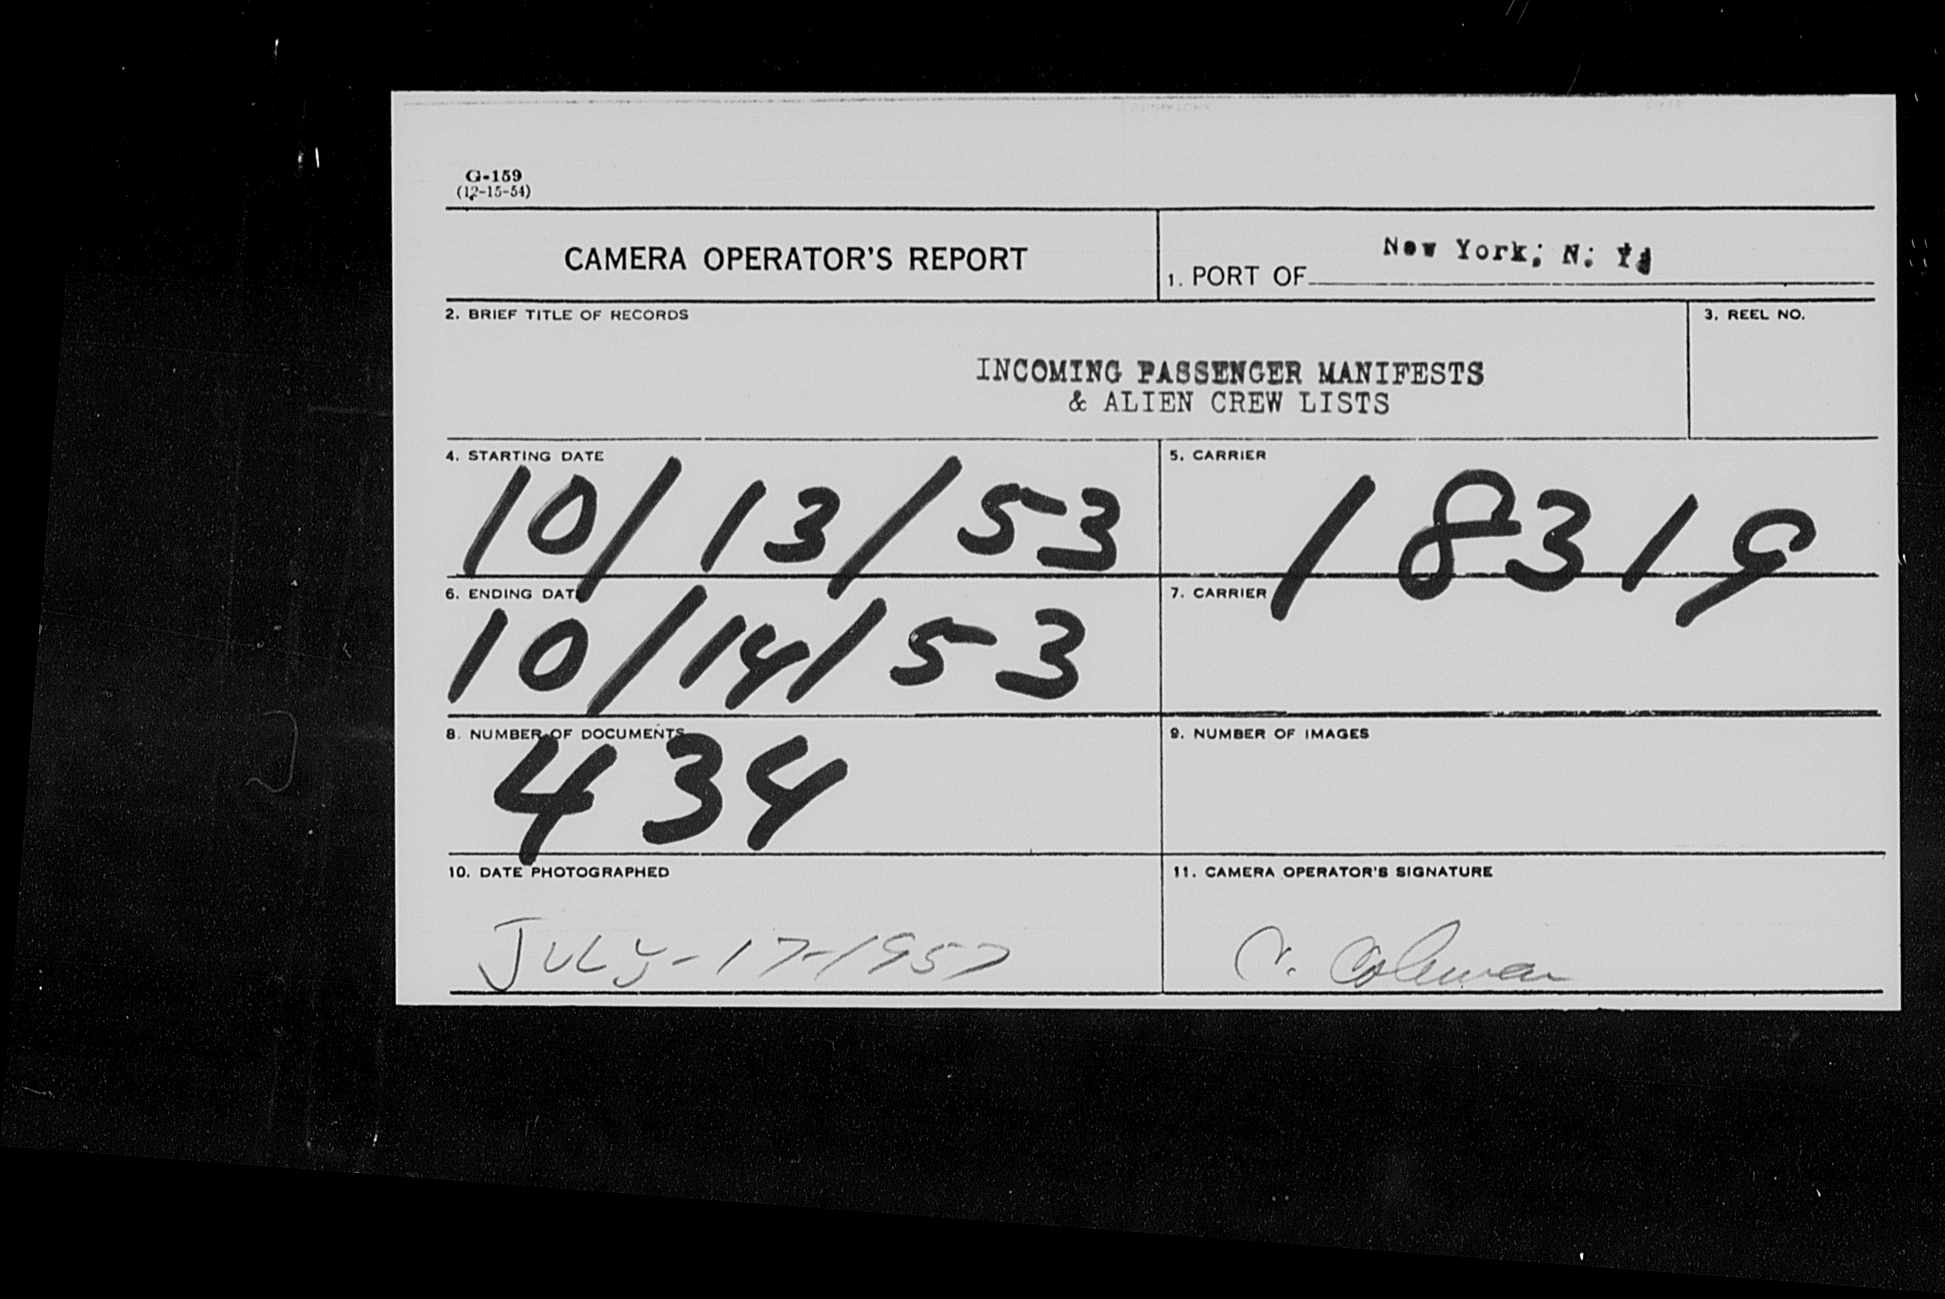 G-159
(12-15-54)
CAMERA OPERATOR'S REPORT
1. PORT OF New York, N. Y.
2. BRIEF TITLE OF RECORDS
INCOMING PASSENGER MANIFESTS
& ALIEN CREW LISTS
3. REEL NO.
4. STARTING DATE
10/13/53
5. CARRIER
18319
6. ENDING DATE
10/14/53
7. CARRIER
8. NUMBER OF DOCUMENTS
434
9. NUMBER OF IMAGES
10. DATE PHOTOGRAPHED
JULY-17-1957
11. CAMERA OPERATOR'S SIGNATURE
Coleman